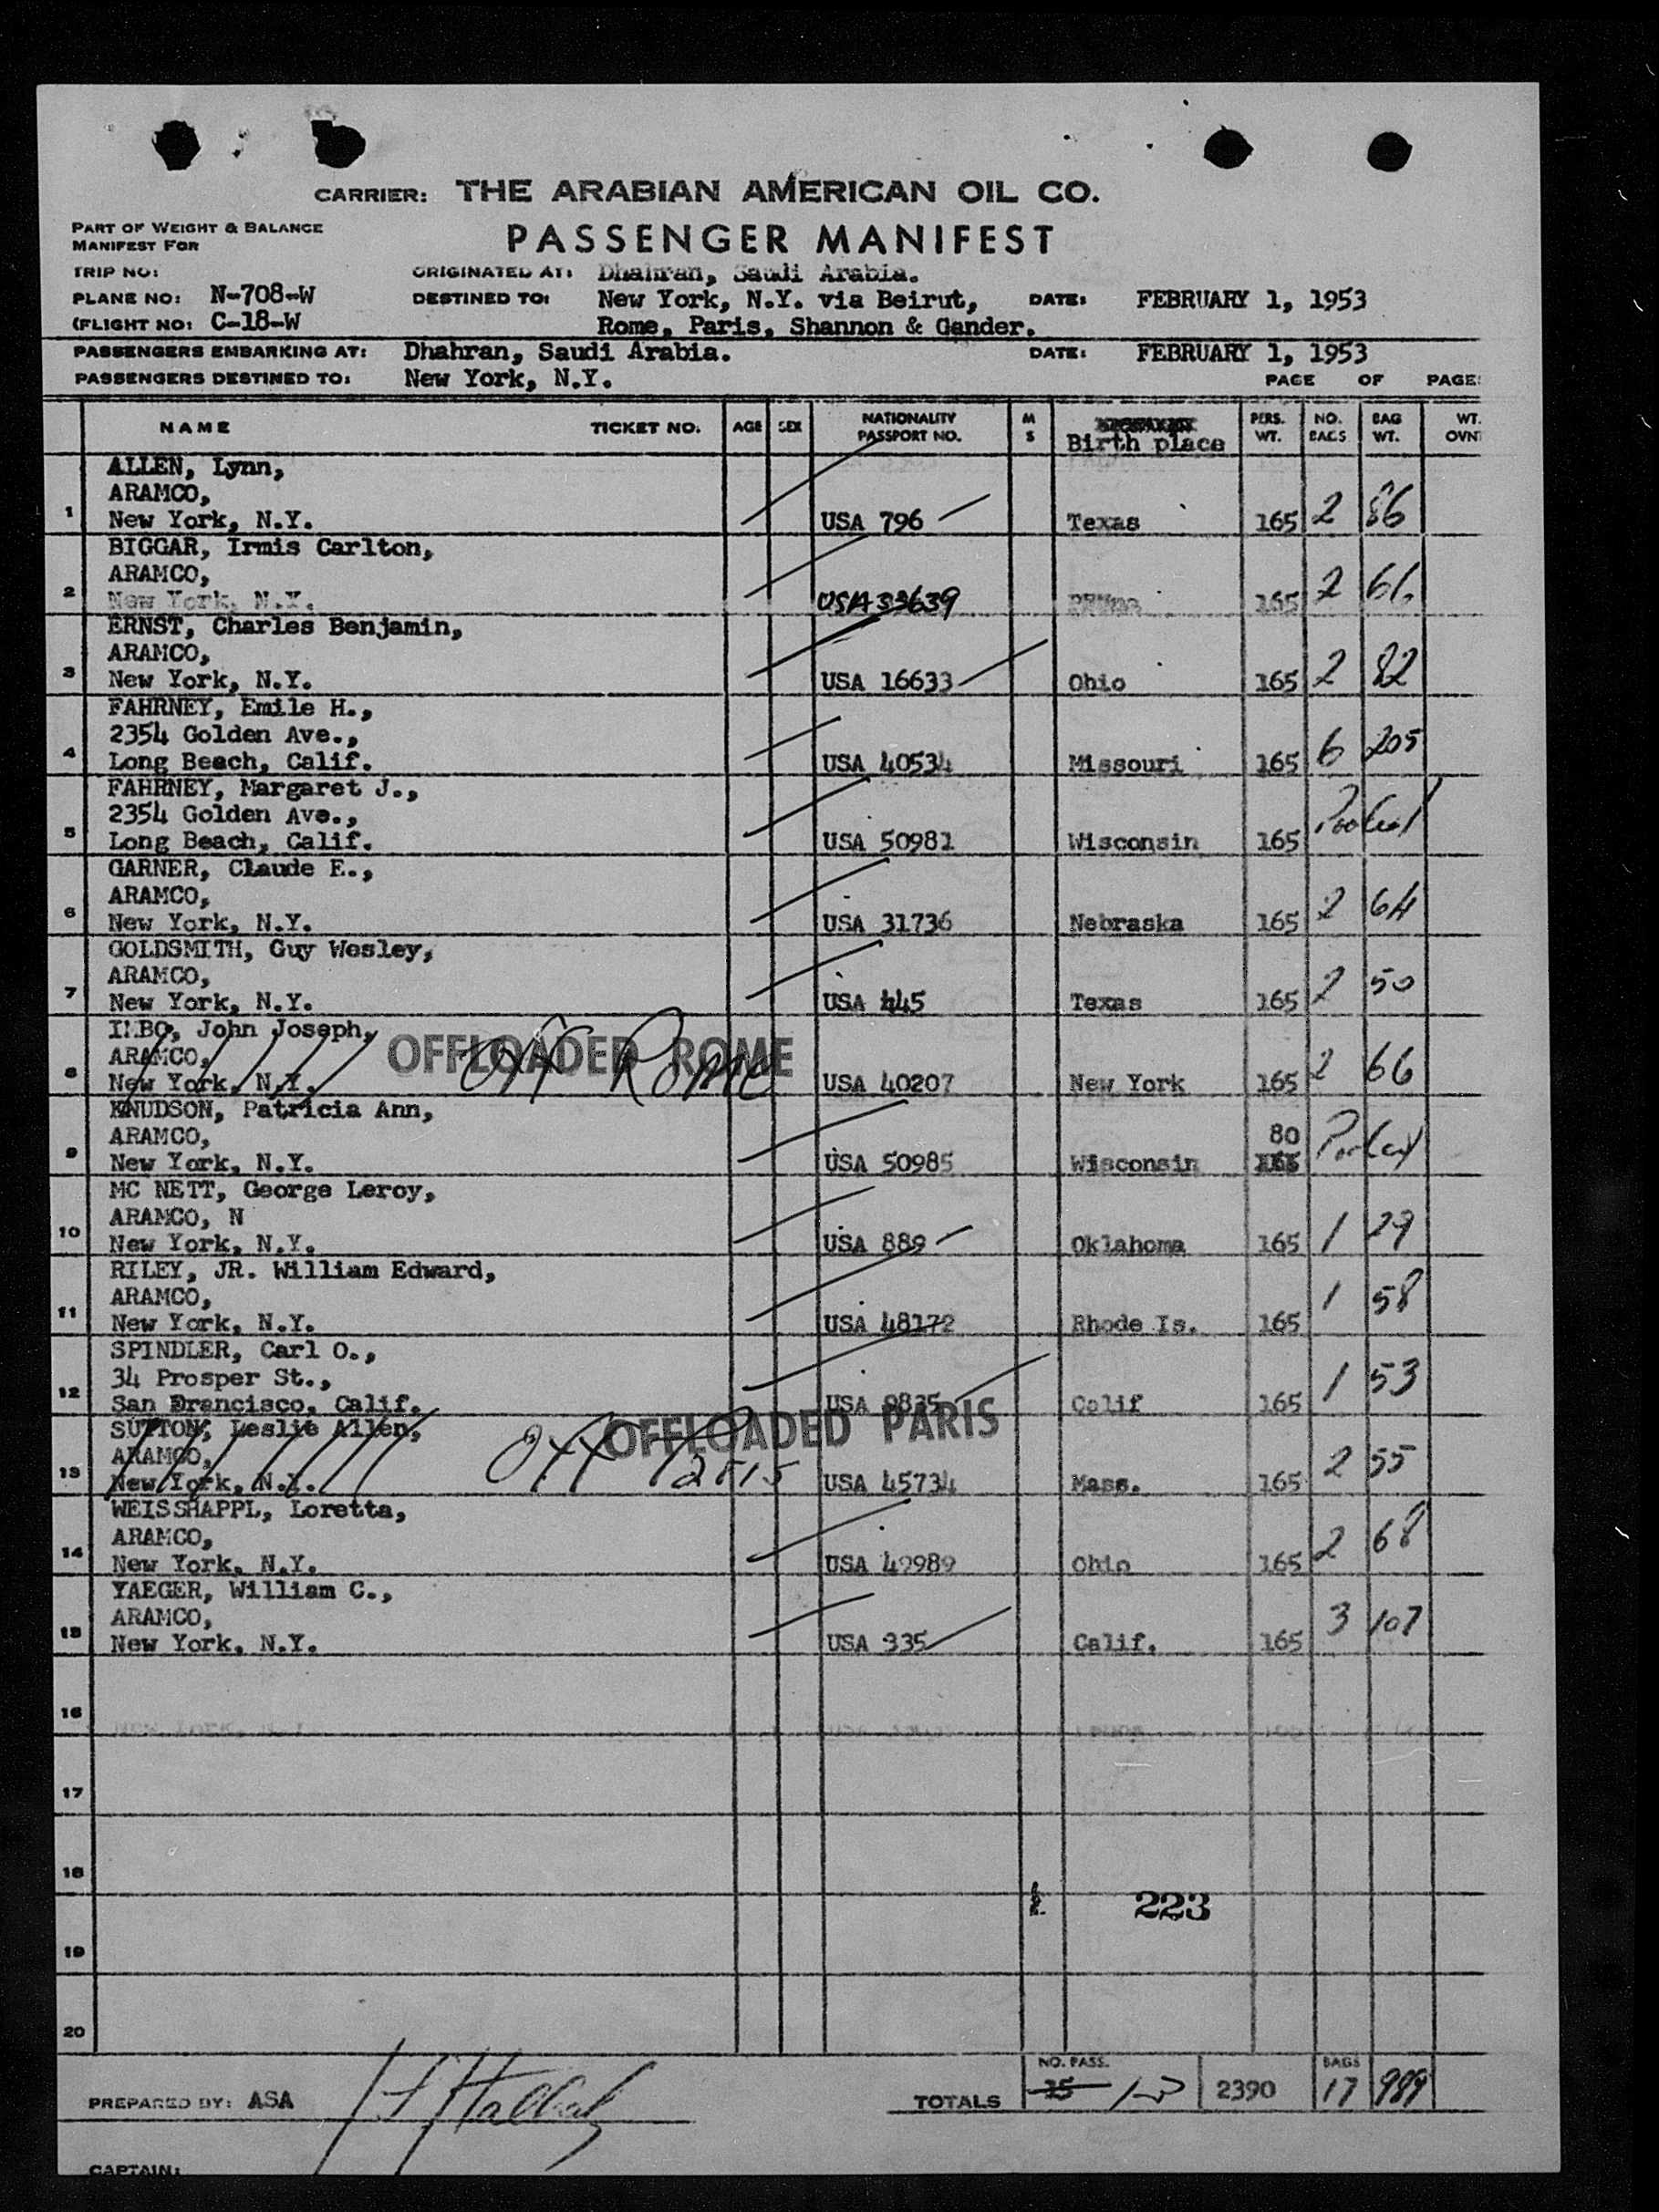 CARRIER: THE ARABIAN AMERICAN OIL CO.
PART OF WEIGHT & BALANCE
MANIFEST FOR
PASSENGER MANIFEST
TRIP NO:
ORIGINATED AT: Dhahran, Saudi Arabia.
PLANE NO: N-708-W
DESTINED TO: New York, N.Y. via Beirut, DATE: FEBRUARY 1, 1953
(FLIGHT NO: C-18-W
Rome, Paris, Shannon & Gander.
PASSENGERS EMBARKING AT: Dhahran, Saudi Arabia. DATE: FEBRUARY 1, 1953
PASSENGERS DESTINED TO: New York, N.Y. PAGE OF PAGE
NAME TICKET NO. AGE SEX NATIONALITY PASSPORT NO. M S Birth place PERS. WT. NO. BAGS BAG WT. WT.
ALLEN, Lynn,
ARAMCO,
1 New York, N.Y. USA 796 Texas 165 2 86
BIGGAR, Irmis Carlton,
ARAMCO,
2 New York, N.Y. USA 33639 165 2 66
ERNST, Charles Benjamin,
ARAMCO,
3 New York, N.Y. USA 16633 Ohio 165 2 82
FAHRNEY, Emile H.,
2354 Golden Ave.,
4 Long Beach, Calif. USA 40534 Missouri 165 6 205
FAHRNEY, Margaret J.,
2354 Golden Ave.,
5 Long Beach, Calif. USA 50981 Wisconsin 165
GARNER, Claude E.,
ARAMCO,
6 New York, N.Y. USA 31736 Nebraska 165 2 64
GOLDSMITH, Guy Wesley,
ARAMCO,
7 New York, N.Y. USA 445 Texas 165 2 50
John Joseph,
ARAMCO, OFFLOADED ROME
8 New York, N.Y. Off Rome USA 40207 New York 165 2 66
KNUDSON, Patricia Ann,
ARAMCO, 80
9 New York, N.Y. USA 50985 Wisconsin 165
MC NETT, George Leroy,
ARAMCO, N
10 New York, N.Y. USA 889 Oklahoma 165 1 29
RILEY, JR. William Edward,
ARAMCO,
11 New York, N.Y. USA 48172 Rhode Is. 165 1 58
SPINDLER, Carl O.,
34 Prosper St.,
12 San Francisco, Calif. USA 9835 Calif 165 1 53
SUTTON, Leslie Allen, OFFLOADED PARIS
ARAMCO,
13 New York, N.Y. Off Paris USA 45734 Mass. 165 2 55
WEISSHAPPL, Loretta,
ARAMCO,
14 New York, N.Y. USA 49989 Ohio 165 2 68
YAEGER, William C.,
ARAMCO,
15 New York, N.Y. USA 335 Calif. 165 3 107
16
17
18
223
19
20
NO. PASS. BAGS
PREPARED BY: ASA TOTALS 15 13 2390 17 989
CAPTAIN: